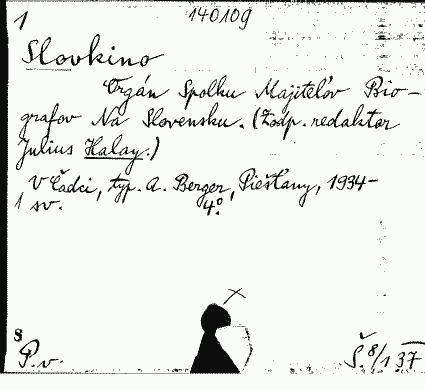 1 140109
Slovkino
Orgán Spolku Majiteľov Bio-
grafov Na Slovensku. (Zodp. redaktor
Julius Halay.)
V Čadci, typ. A. Berger, Piešťany, 1934-
1 sv. 4°.
8
P.v. Š.8/1 37